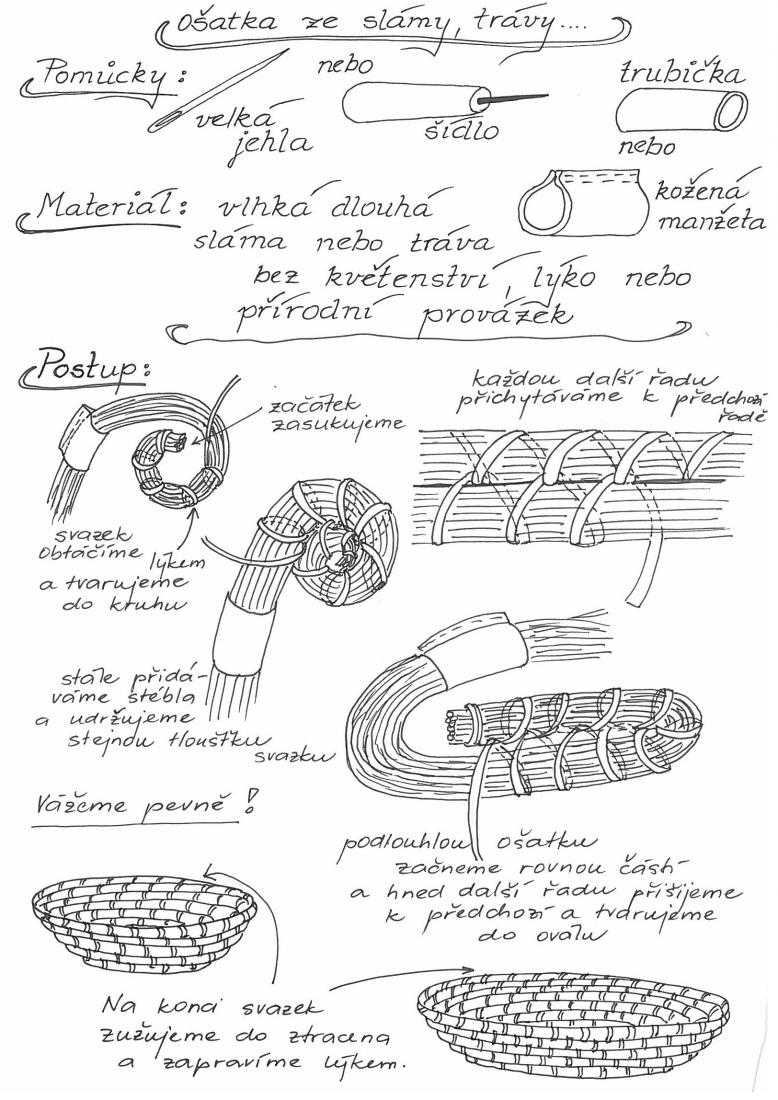 Ošatka ze slámy, trávy....
Pomůcky:
velká
jehla
nebo
šídlo
trubička
nebo
kožená
manžeta
Materiál: vlhká dlouhá
sláma nebo tráva
bez květenství, lýko nebo
přírodní provázek
Postup:
začátek
zasukujeme
svazek
obtáčíme lýkem
a tvarujeme
do kruhu
každou další řadu
přichytáváme k předchozí
řadě
stále přidá-
váme stébla
a udržujeme
stejnou tloušťku
svazku
Vážeme pevně!
podlouhlou ošatku
začneme rovnou částí
a hned další řadu přišijeme
k předchozí a tvarujeme
do oválu
Na konci svazek
zužujeme do ztracena
a zapravíme lýkem.